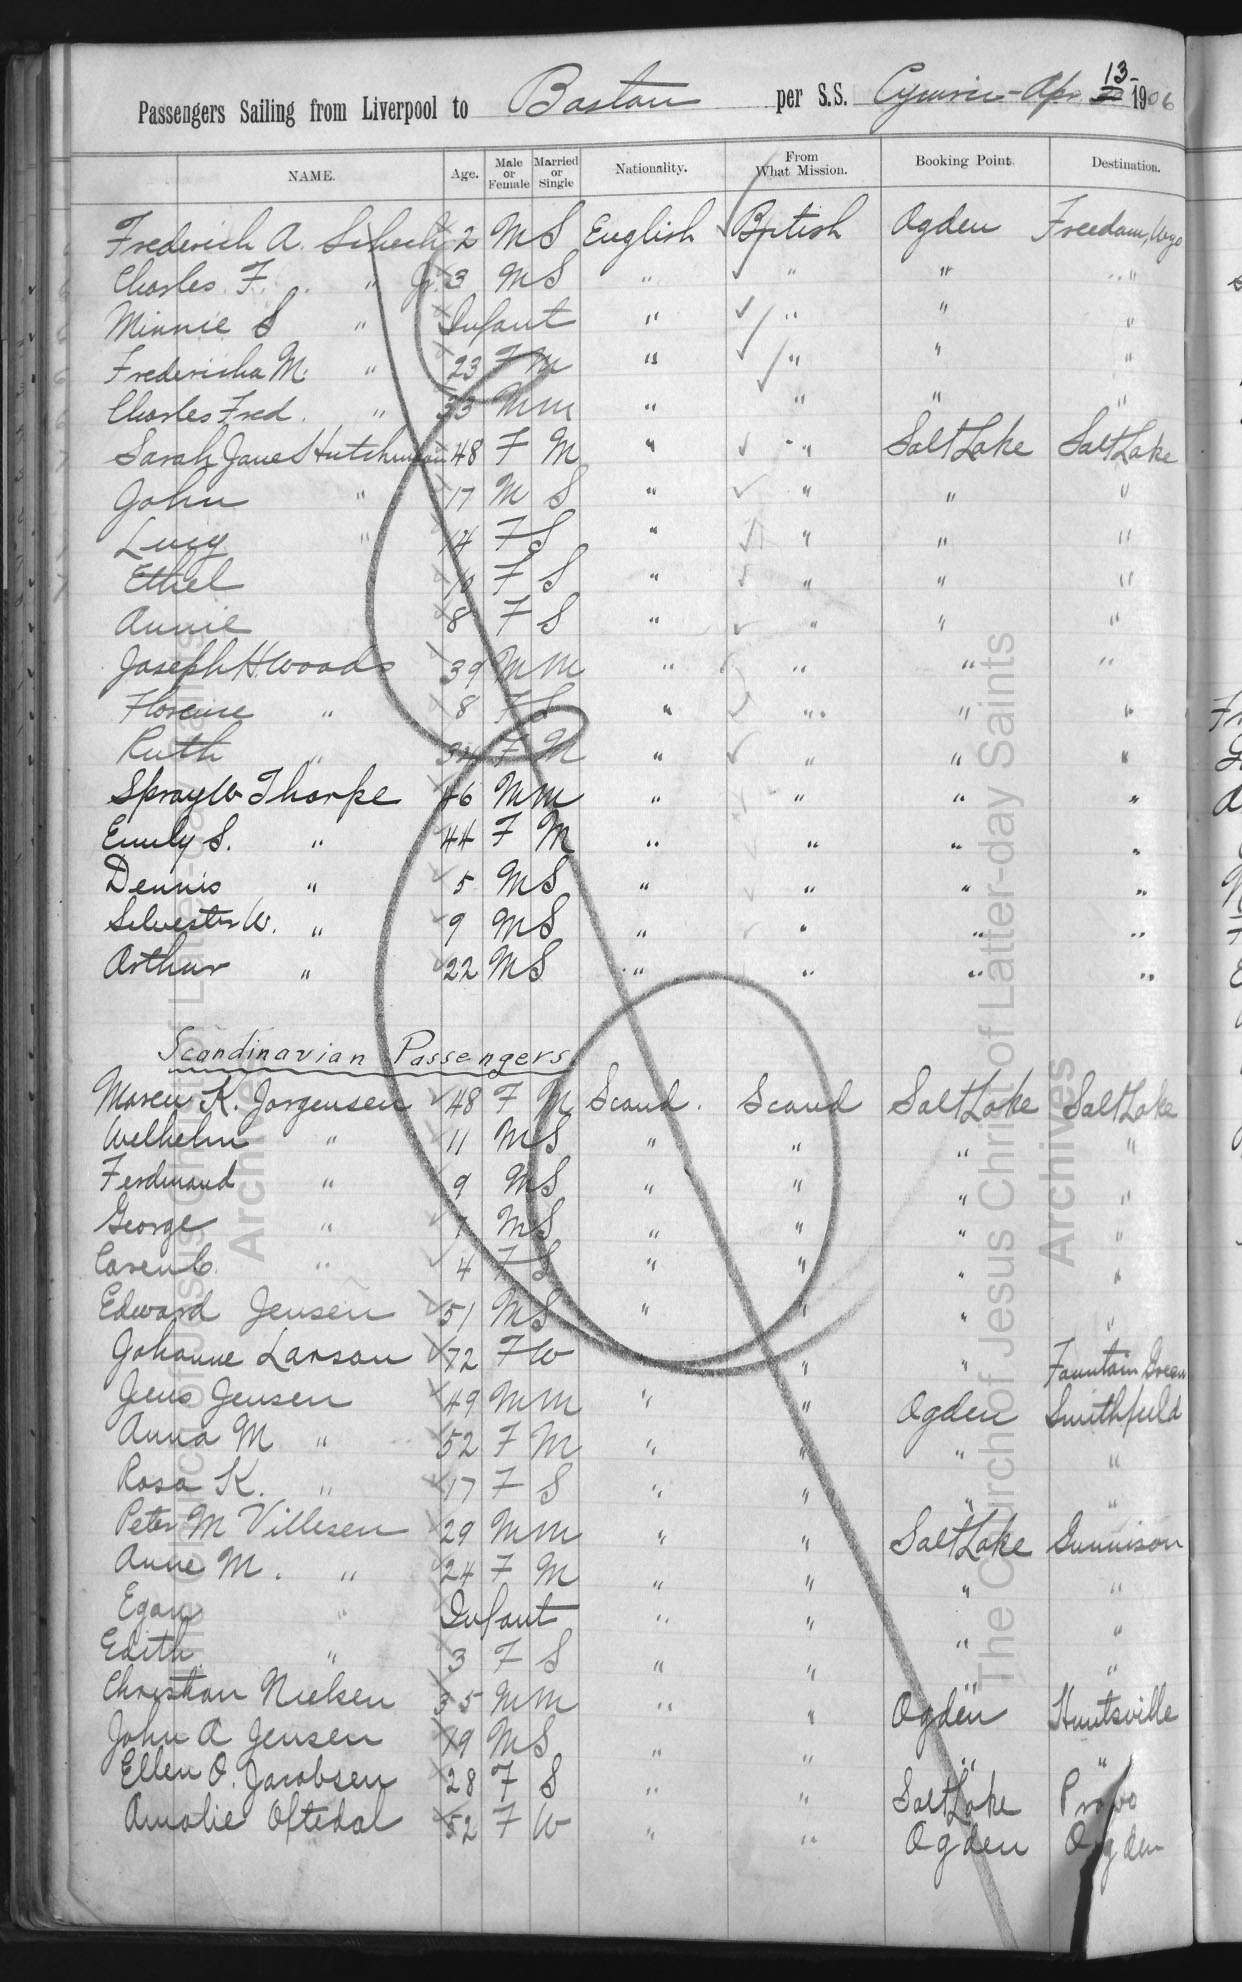 Passengers Sailing from Liverpool to Boston per S.S. Cymric - Apr 13- 1906
NAME. Age. Male or Female Married or Single Nationality. From What Mission. Booking Point. Destination.
Frederich A. 2 M S English British Ogden Freedom, Wyo
Charles F. " Jr 3 M S " " " "
Minnie S " Infant " " " "
Fredericha M. " 23 F M " " " "
Charles Fred. " 33 M M " " " "
Sarah Jane Hutchinson 48 F M " " Salt Lake Salt Lake
John " 17 M S " " " "
Lucy " 14 F S " " " "
Ethel 10 F S " " " "
Annie 8 F S " " " "
Joseph H. Woods 39 M M " " " "
Florence " 8 F S " " " "
Ruth " 34 F M " " " "
Spray W Thorpe 46 M M " " " "
Emily S. " 44 F M " " " "
Dennis " 5 M S " " " "
Silvester W. " 9 M S " " " "
Arthur " 22 M S " " " "
Scandinavian Passengers.
Maren K. Jorgensen 48 F M Scand. Scand Salt Lake Salt Lake
Wilhelm " 11 M S " " " "
Ferdinand " 9 M S " " " "
George " 7 M S " " " "
Caren C. " 4 F S " " " "
Edward Jensen 51 M S " " " "
Johanne Larson 72 F W " " Fountain Green
Jens Jensen 49 M M " " Ogden Smithfield
Anna M " 52 F M " " " "
Rosa K. " 17 F S " " " "
Peter M Villesen 29 M M " " Salt Lake Gunnison
Anne M. " 24 F M " " " "
Egon " Infant " " " "
Edith " 3 F S " " " "
Christian Nielsen 35 M M " " Ogden Huntsville
John A Jensen 19 M S " " " "
Ellen O. Jacobsen 28 F S " " Salt Lake Provo
Amalie Oftedal 52 F W " " Ogden Ogden
The Church of Jesus Christ of Latter-day Saints
Archives
The Church of Jesus Christ of Latter-day Saints
Archives